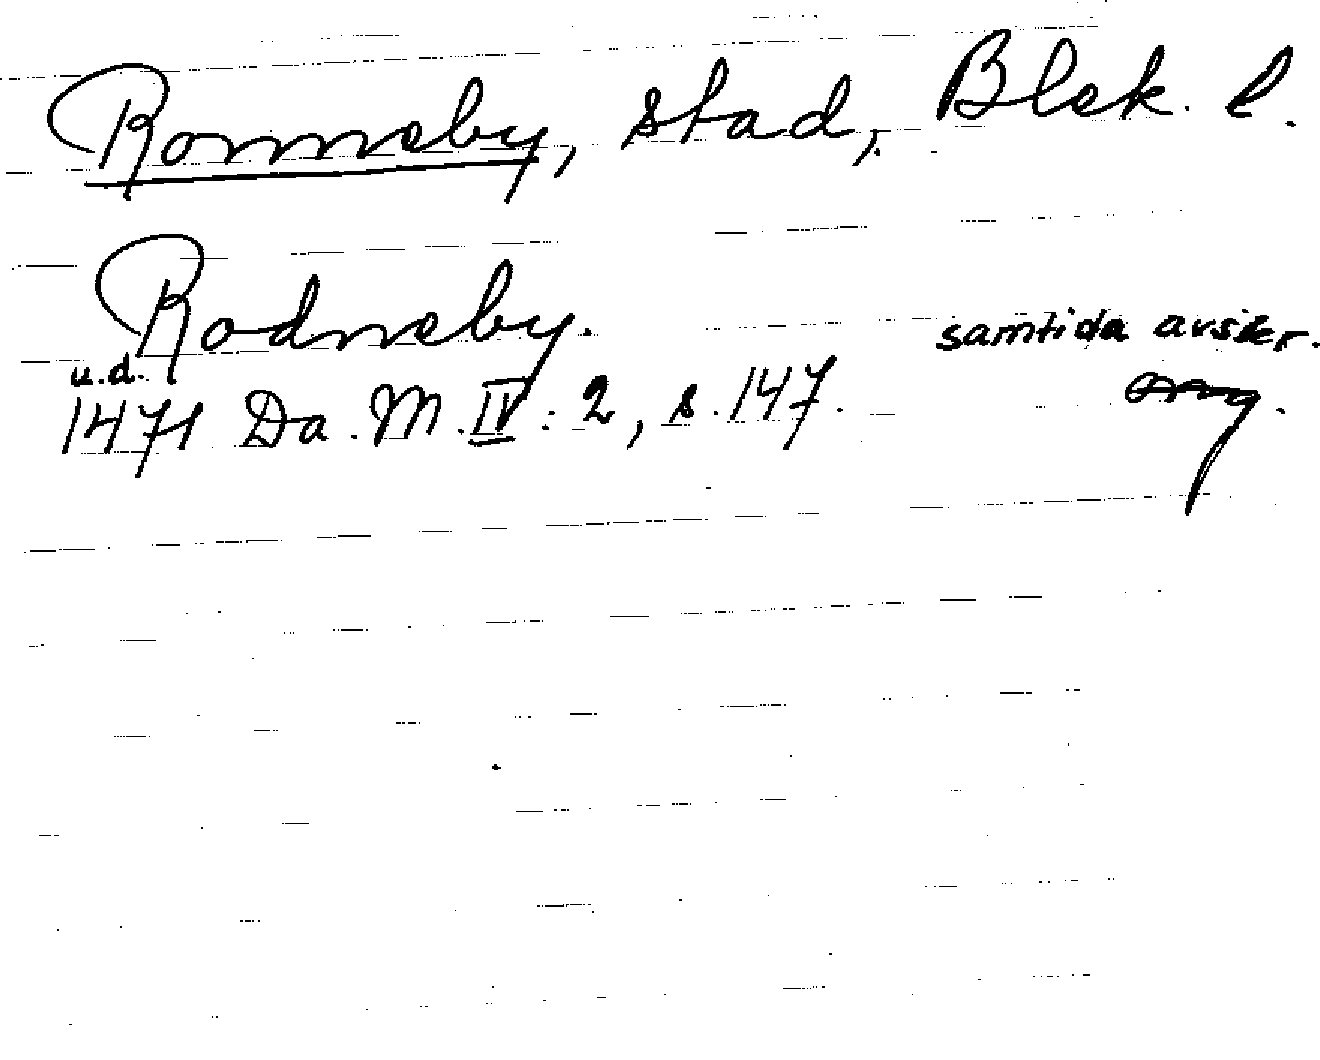 Ronneby, stad, Blek. l.
Rodneby.
samtida avskr.
u.d.
1471 Da. M. IV: 2, s. 147.